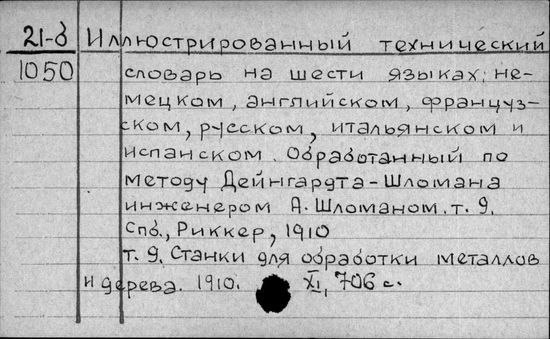 21-б Иллюстрированный технический
1050 словарь на шести языках: не-
мецком, английском, француз-
ском, русском, итальянском и
испанском. Обработанный по
методу Дейнгардта-Шломана
инженером А. Шломаном. т. 9.
Спб., Риккер, 1910
т. 9. Станки для обработки металлов
и дерева. 1910. XI, 706 с.